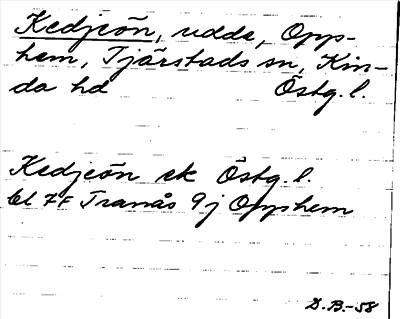 Kedjeön, udde, Opp-
hem, Tjärstads sn, Kin-
da hd Östg.l.
Kedjeön ek Östg.l.
bl 7F Tranås 9j Opphem
D.B.-58